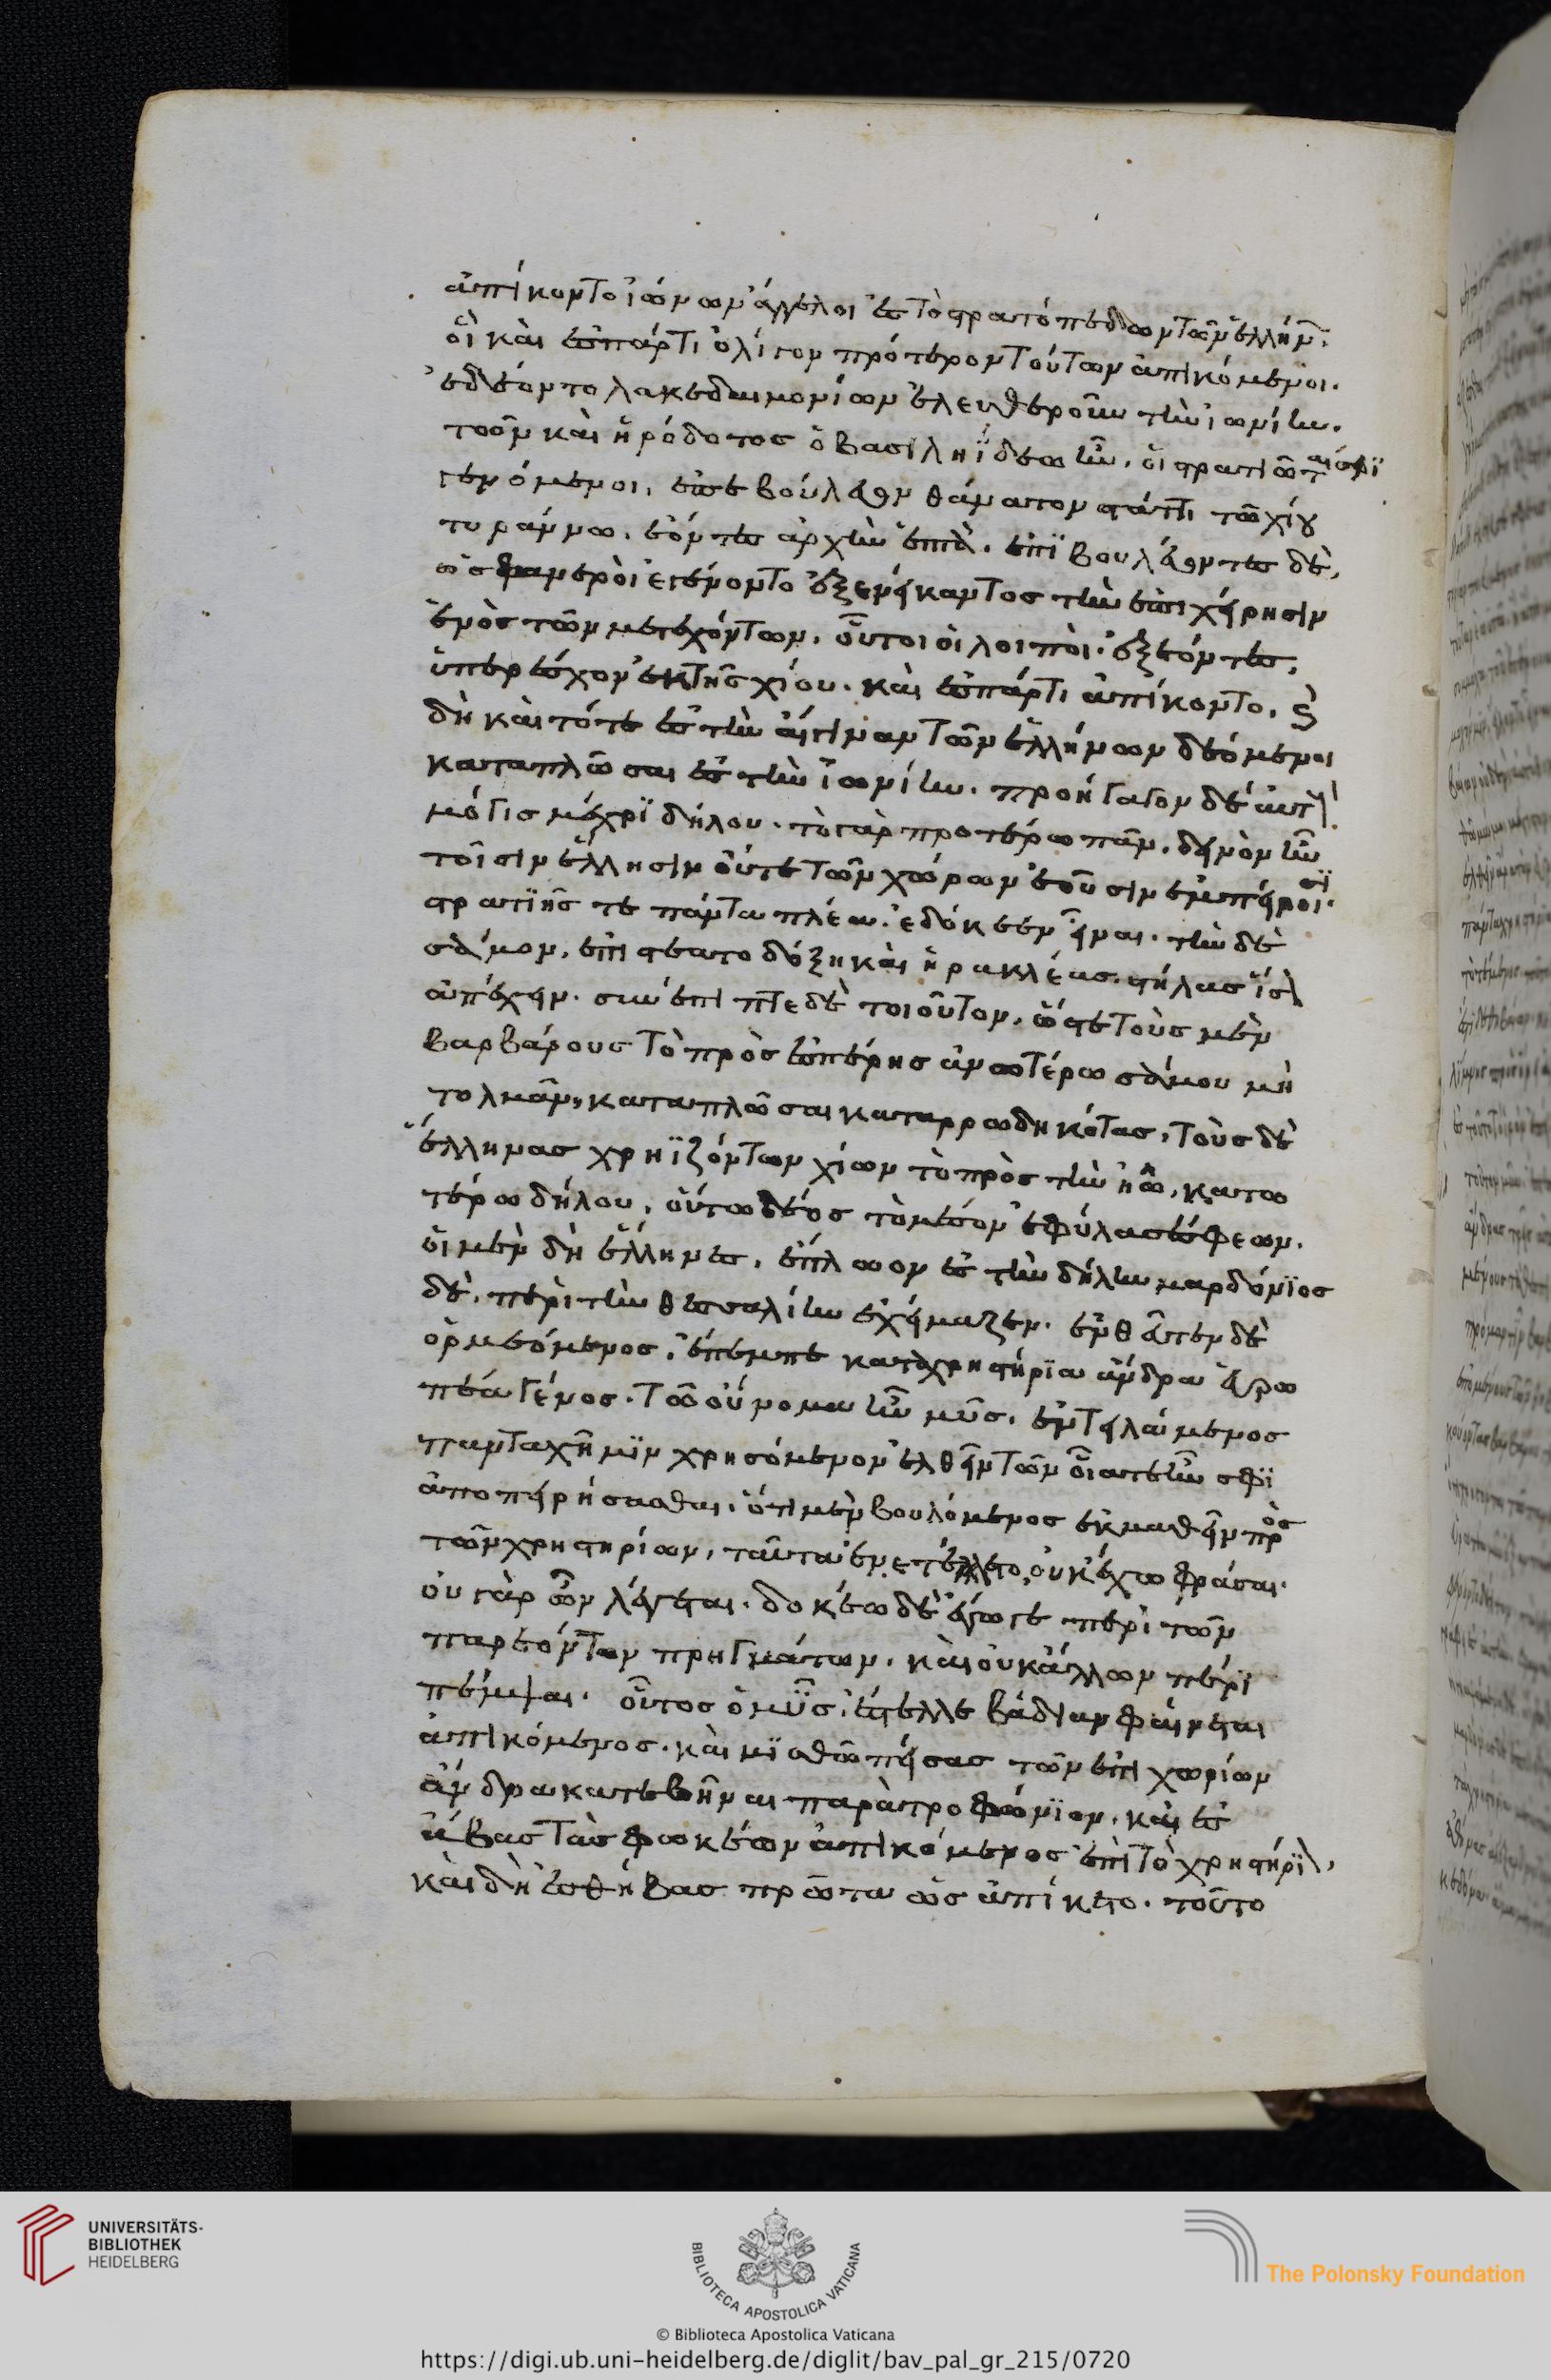 ἀπίκοντο ἰώνων ἄγγελοι ἐς τὸ στρατόπεδων τῶν ἑλλήν.
οἳ καὶ ἐς σπάρτι ὀλίγον πρότερον τούτων ἀπικόμενοι.
ἐδέοντο λακεδαιμονίων ἐλευθεροῦν τὴν ἰωνίην.
τῶν καὶ ἡρόδοτος ὁ βασιληΐδεω ἦν. οἳ στασιῶται σφϊ
γενόμενοι, ἐπεβούλευον θάνατον στράττι τῶ χίου
τυράννω. ἐόντες ἀρχὴν ἑπτὰ. ἐπϊβουλεύοντες δὲ,
ὡς φανεροὶ ἐγένοντο ἐξενείκαντος τὴν ἐπιχείρησιν
ἑνὸς τῶν μετεχόντων. οὗτοι οἱ λοιποὶ ἓξ ἐόντες,
ὑπερέσχον ἐκ τῆς χίου. καὶ ἐς σπάρτι ἀπίκοντο, καὶ
δὴ καὶ τότε ἐς τὴν αἴγιναν τῶν ἑλλήνων δεόμενοι
καταπλῶσαι ἐς τὴν ἰωνίην. προήγαγον δὲ αὐτὶ
μόγις μέχρϊ δήλου. τὸ γὰρ προτέρω πᾶν, δεινὸν ἦν
τοῖσιν ἕλλησιν οὔτε τῶν χώρων ἐοῦσιν ἐμπείροισϊ.
στρατϊῆς τε πάντα πλέα ἐδόκεεν εἶναι. τὴν δὲ
σάμον, ἐπιστέατο δόξη καὶ ἡρακλέας στήλας ἴσον
ἀπέχειν. συνέπιπτε δὲ τοιοῦτον, ὥστε τοὺς μὲν
βαρβάρους τὸ πρὸς ἑσπέρης ἀνωτέρω σάμου μὴ
τολμᾶν, καταπλῶσαι καταρρωδηκότας, τοὺς δὲ
ἕλληνας χρηϊζόντων χίων τὸ πρὸς τὴν ἠῶ, κατω
τέρω δήλου, οὕτω δέος τὸ μέσον ἐφύλασσέ σφεων.
οἱ μὲν δὴ ἕλληνες, ἔπλωον ἐς τὴν δήλην μαρδόνϊος
δὲ, περὶ τὴν θεσσαλίην ἐχείμαζεν. ἐνθεῦτεν δὲ
ὁρμεόμενος, ἔπεμπε κατὰ χρηστήρϊα ἄνδρα εὐρω
πέα γένος. τῶ οὔνομα ἦν μῦς. ἐντειλάμενος
πανταχῆ μϊν χρησόμενον ἐλθεῖν τῶν οἷά τε ἦν σφϊ
ἀποπειρήσασθαι. ὅτι μὲν βουλόμενος ἐκμαθεῖν πρὸς
τῶν χρηστηρίων, ταῦτα ἐνετέλλετο, οὐκ ἔχω φράσαι.
οὐ γὰρ ὦν λέγεται. δοκέω δὲ ἔγωγε περὶ τῶν
παρεόντων πρηγμάτων, καὶ οὐκ ἄλλων πέρϊ
πέμψαι. οὗτος ὁ μῦς ἔς τε λεβάδιαν φαίνεται
ἀπικόμενος. καὶ μϊσθῶ πείσας τῶν ἐπιχωρίων
ἄνδρα καταβῆναι παρὰ τροφώνϊον. καὶ ἐς
ἄβας τὰς φωκέων ἀπικόμενος ἐπὶ τὸ χρηστήρϊον,
καὶ δὴ ἐς θήβας πρῶτα ὡς ἀπίκετο. τοῦτο
UNIVERSITÄTS-
BIBLIOTHEK
HEIDELBERG
BIBLIOTECA APOSTOLICA VATICANA
The Polonsky Foundation
© Biblioteca Apostolica Vaticana
https://digi.ub.uni-heidelberg.de/diglit/bav_pal_gr_215/0720